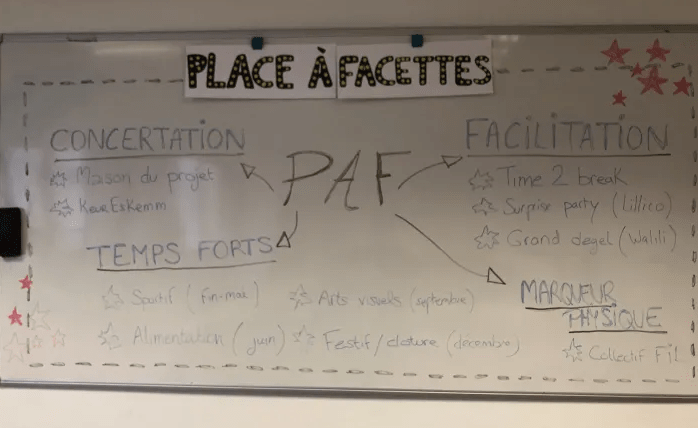 PLACE À FACETTES
PAF
CONCERTATION
Maison du projet
KeurEskemm
FACILITATION
Time 2 break
Surprise party (Lillico)
Grand degel (Walili)
TEMPS FORTS
Sportif (fin-mai)
Arts visuels (septembre)
Alimentation (juin)
Festif/cloture (décembre)
MARQUEUR
PHYSIQUE
Collectif Fil